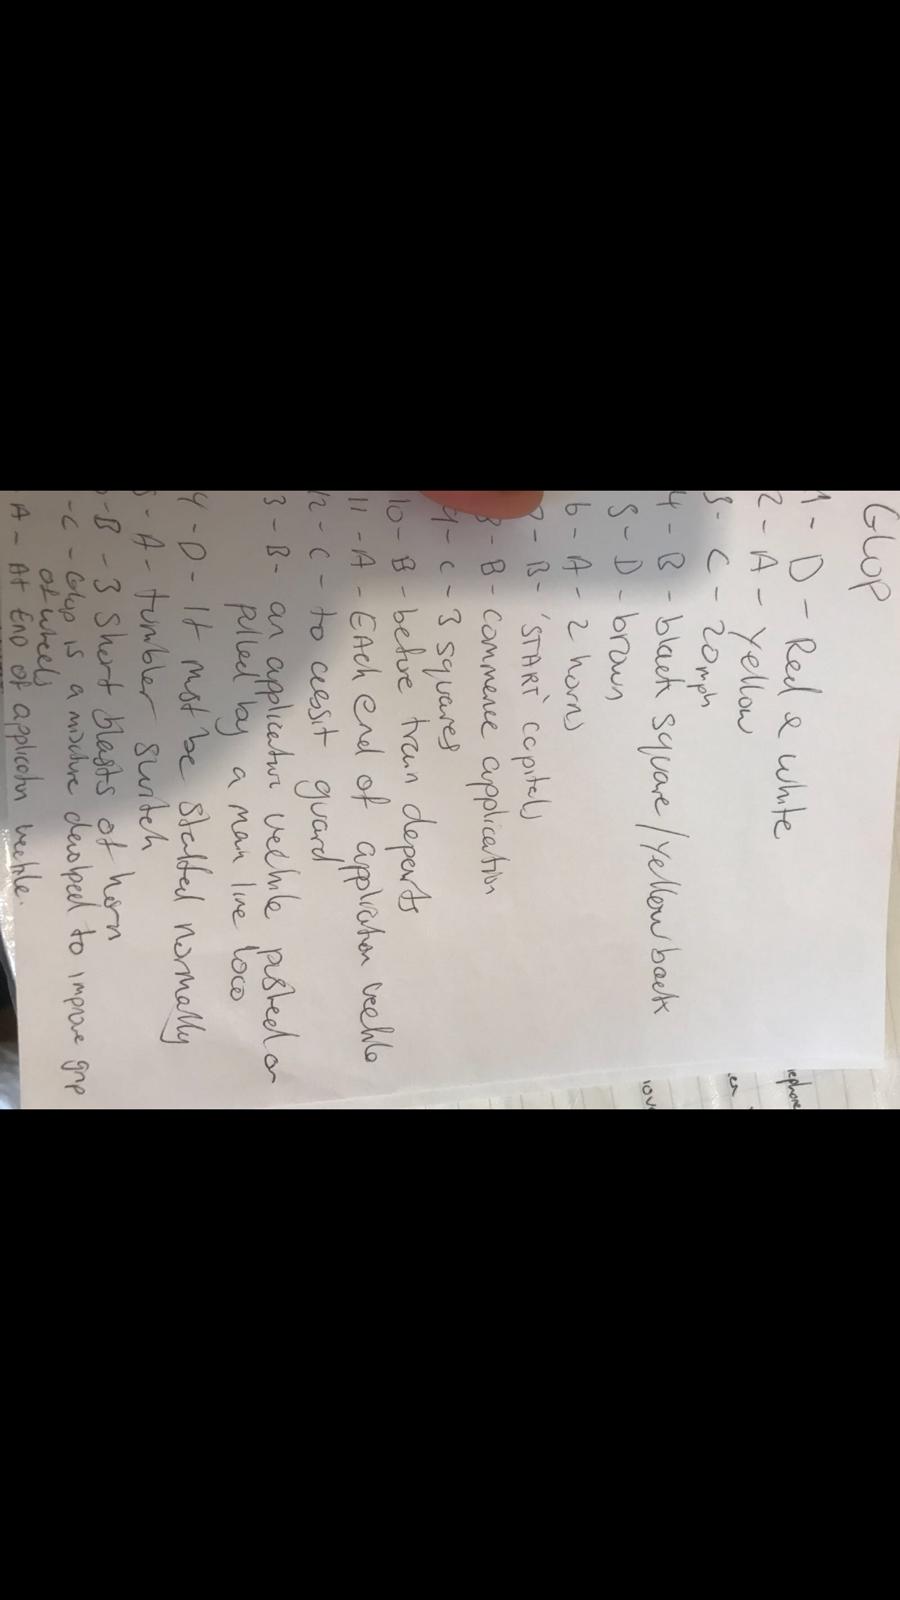 GLOP
1 - D - Red & white
2 - A - yellow
3 - C - 20mph
4 - B - black square / yellow back
5 - D - brown
6 - A - 2 horns
7 - B - 'START' capitals
8 - B - commence application
9 - C - 3 squares
10 - B - before train departs
11 - A - EAch end of application veehile
12 - C - to assist guard
3 - B - an application veehile pushed or
pulled by a main line loco
4 - D - It must be staffed normally
5 - A - tumbler switch
- B - 3 short blasts of horn
- C - Glop is a mixture devolped to improve grip
of wheels
A - At END of applicaton veehile.
ephone
er
iov